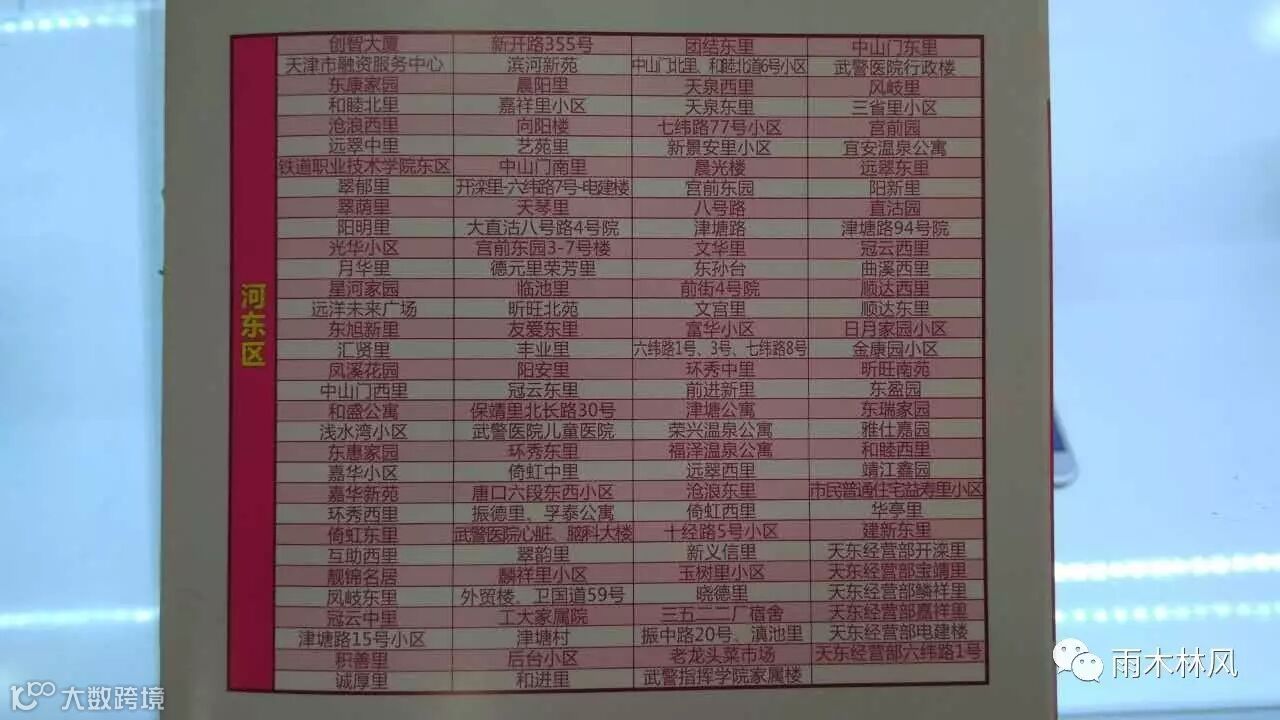 河东区
创智大厦 新开路355号 团结东里 中山门东里
天津市融资服务中心 滨河新苑 中山门北里、和睦北道6号小区 武警医院行政楼
东康家园 晨阳里 天泉西里 风岐里
和睦北里 嘉祥里小区 天泉东里 三省里小区
沧浪西里 向阳楼 七纬路77号小区 宫前园
远翠中里 艺苑里 新景安里小区 宜安温泉公寓
铁道职业技术学院东区 中山门南里 晨光楼 远翠东里
翠郁里 开滦里-六纬路7号-电建楼 宫前东园 阳新里
翠荫里 天琴里 八号路 直沽园
阳明里 大直沽八号路4号院 津塘路 津塘路94号院
光华小区 宫前东园3-7号楼 文华里 冠云西里
月华里 德元里荣芳里 东孙台 曲溪西里
星河家园 临池里 前街4号院 顺达西里
远洋未来广场 昕旺北苑 文宫里 顺达东里
东旭新里 友爱东里 富华小区 日月家园小区
汇贤里 丰业里 六纬路1号、3号、七纬路8号 金康园小区
凤溪花园 阳安里 环秀中里 昕旺南苑
中山门西里 冠云东里 前进新里 东盈园
和盛公寓 保靖里北长路30号 津塘公寓 东瑞家园
浅水湾小区 武警医院儿童医院 荣兴温泉公寓 雅仕嘉园
东惠家园 环秀东里 福泽温泉公寓 和睦西里
嘉华小区 倚虹中里 远翠西里 靖江鑫园
嘉华新苑 唐口六段东西小区 沧浪东里 市民普通住宅益寿里小区
环秀西里 振德里、孚泰公寓 倚虹西里 华亭里
倚虹东里 武警医院心脏、脑科大楼 十经路5号小区 建新东里
互助西里 翠韵里 新义信里 天东经营部开滦里
靓锦名居 麟祥里小区 玉树里小区 天东经营部宝靖里
凤岐东里 外贸楼、卫国道59号 晓德里 天东经营部鳞祥里
冠云中里 工大家属院 三五二二厂宿舍 天东经营部嘉祥里
津塘路15号小区 津塘村 振中路20号、滇池里 天东经营部电建楼
积善里 后台小区 老龙头菜市场 天东经营部六纬路1号
诚厚里 和进里 武警指挥学院家属楼
大数跨境
雨木林风